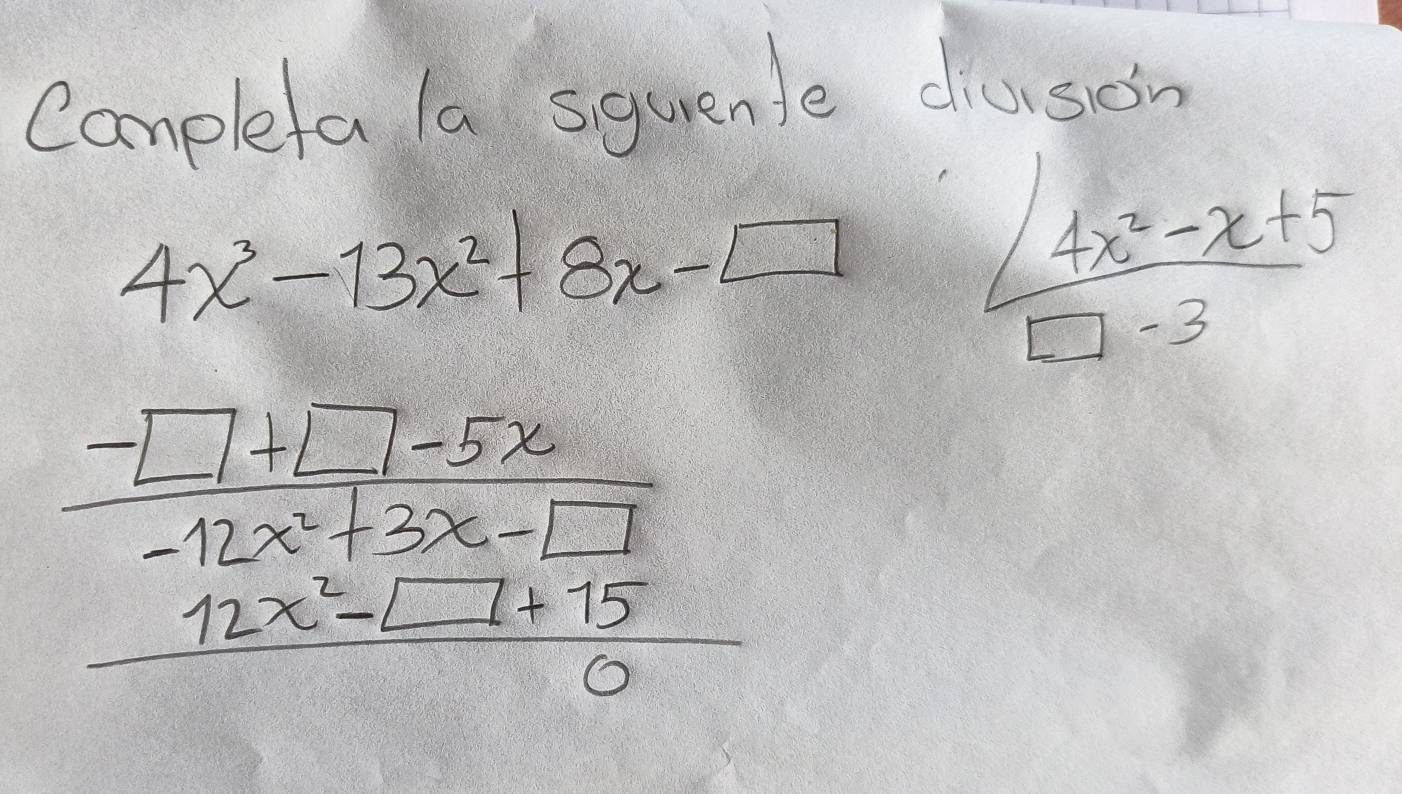 Completa la siguiente división
4x³ - 13x² + 8x - □ 4x² - x + 5
□ - 3
- □ + □ - 5x
-12x² + 3x - □
12x² - □ + 15
0